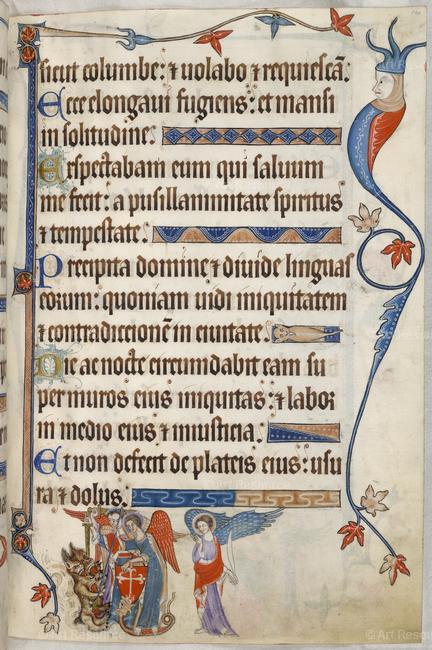 sicut columbe: ⁊ uolabo ⁊ requiescā.
Ecce elongaui fugiens: et mansi
in solitudine.
Expectabam eum qui saluum
me fecit: a pusillanimitate spiritus
⁊ tempestate.
Precipita domine ⁊ diuide linguas
eorum: quoniam uidi iniquitatem
⁊ contradiccionē in ciuitate.
Die ac nocte circumdabit eam su
per muros eius iniquitas: ⁊ labor
in medio eius ⁊ iniusticia.
Et non defecit de plateis eius: usu
ra ⁊ dolus.
© Art Resource